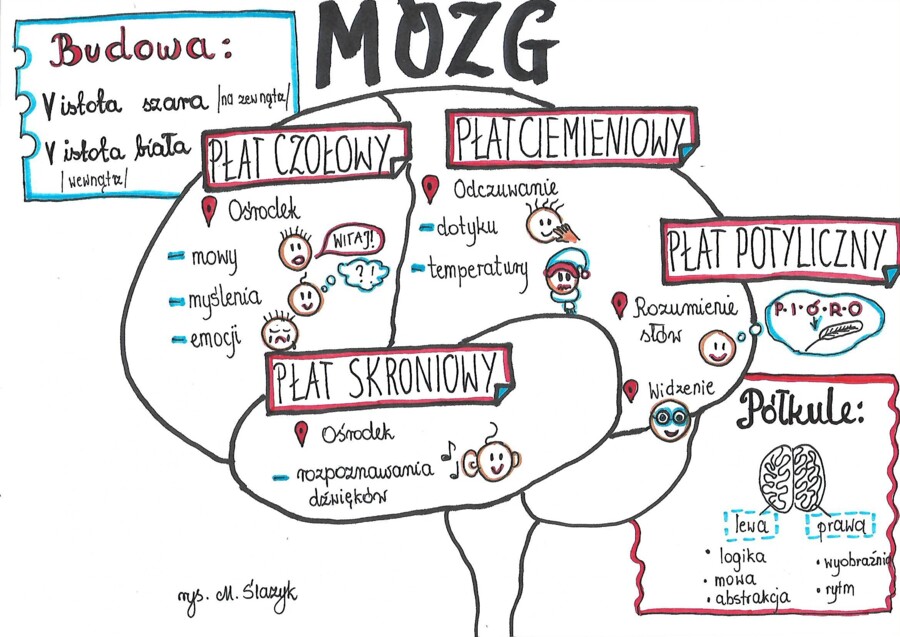 MÓZG
Budowa:
V istota szara /na zewnątrz/
V istota biała
/wewnątrz/
PŁAT CZOŁOWY
Ośrodek
- mowy
- myślenia
- emocji
WITAJ!
?!
PŁAT CIEMIENIOWY
Odczuwanie
- dotyku
- temperatury
PŁAT POTYLICZNY
Rozumienie
słów
P·I·Ó·R·O
Widzenie
PŁAT SKRONIOWY
Ośrodek
- rozpoznawania
dźwięków
Półkule:
lewa
• logika
• mowa
• abstrakcja
prawa
• wyobraźnia
• rytm
rys. M. Ślazyk